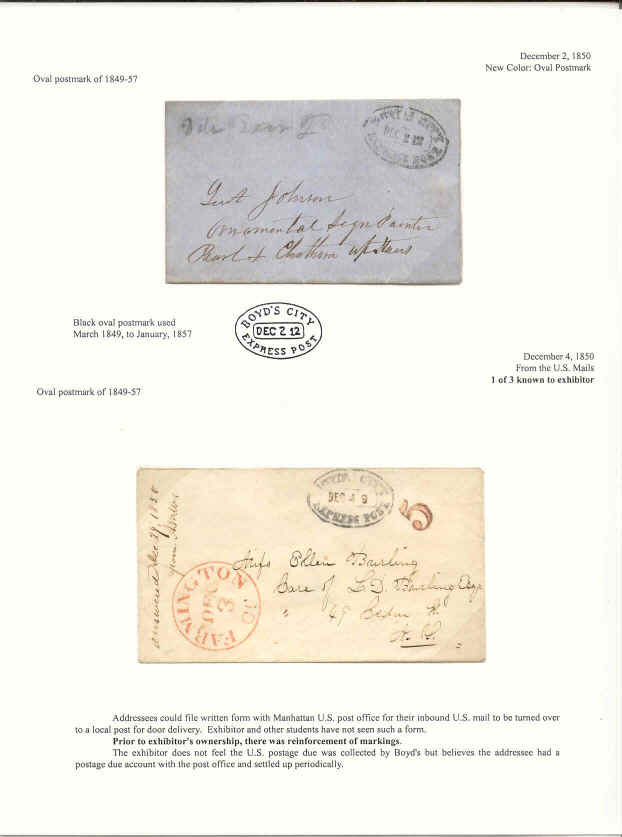 December 2, 1850
New Color: Oval Postmark
Oval postmark of 1849-57
BOYD'S CITY
DEC 2 12
EXPRESS POST
Johnson
Ornamental Sign Painter
Pearl & Chatham upstairs
Black oval postmark used
March 1849, to January, 1857
BOYD'S CITY
DEC 2 12
EXPRESS POST
December 4, 1850
From the U.S. Mails
1 of 3 known to exhibitor
Oval postmark of 1849-57
BOYD'S CITY
DEC 4 9
EXPRESS POST
5
answered Dec 1850
FARMINGTON
DEC
3
Miss Ellen
Care of L. D. Esqr
" 45 Cedar St
N. Y.
Addressees could file written form with Manhattan U.S. post office for their inbound U.S. mail to be turned over
to a local post for door delivery. Exhibitor and other students have not seen such a form.
Prior to exhibitor's ownership, there was reinforcement of markings.
The exhibitor does not feel the U.S. postage due was collected by Boyd's but believes the addressee had a
postage due account with the post office and settled up periodically.